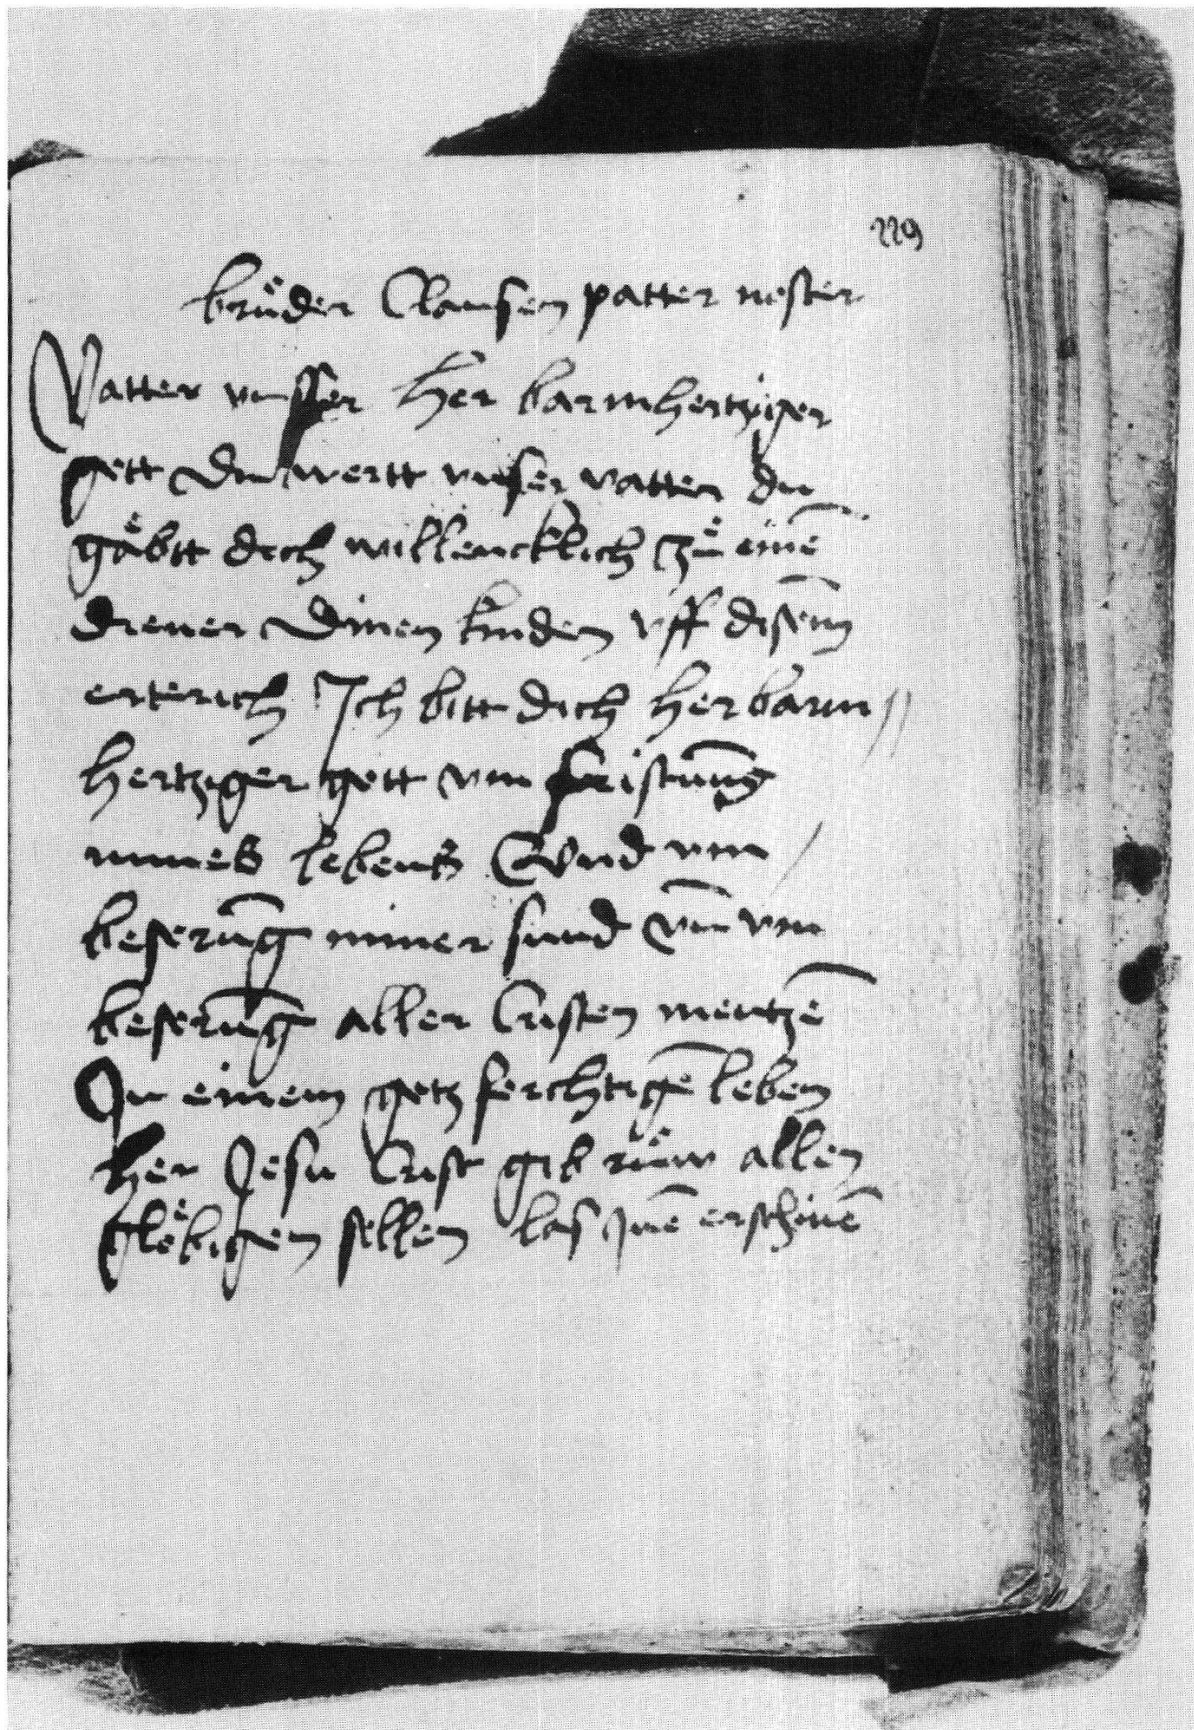 229
brůder Clausen patter noster
Vatter vnsser her barmhertziger
gott du wertt vnser vatter du
gäbtt dich willencklich zů eine͂
diener dinen kinden vff dise͂m
erterich Ich bitt dich her barm//
hertziger gott vm fristun͂g
mines lebens Vnd vm /
beserun͂g miner sünd vn͂ vm
beserun͂g aller Cristen mentze͂
In einem gotz forchtige͂ leben
her Jesu Crist gib růw allen
glöbigen sellen las jne͂ erschine͂